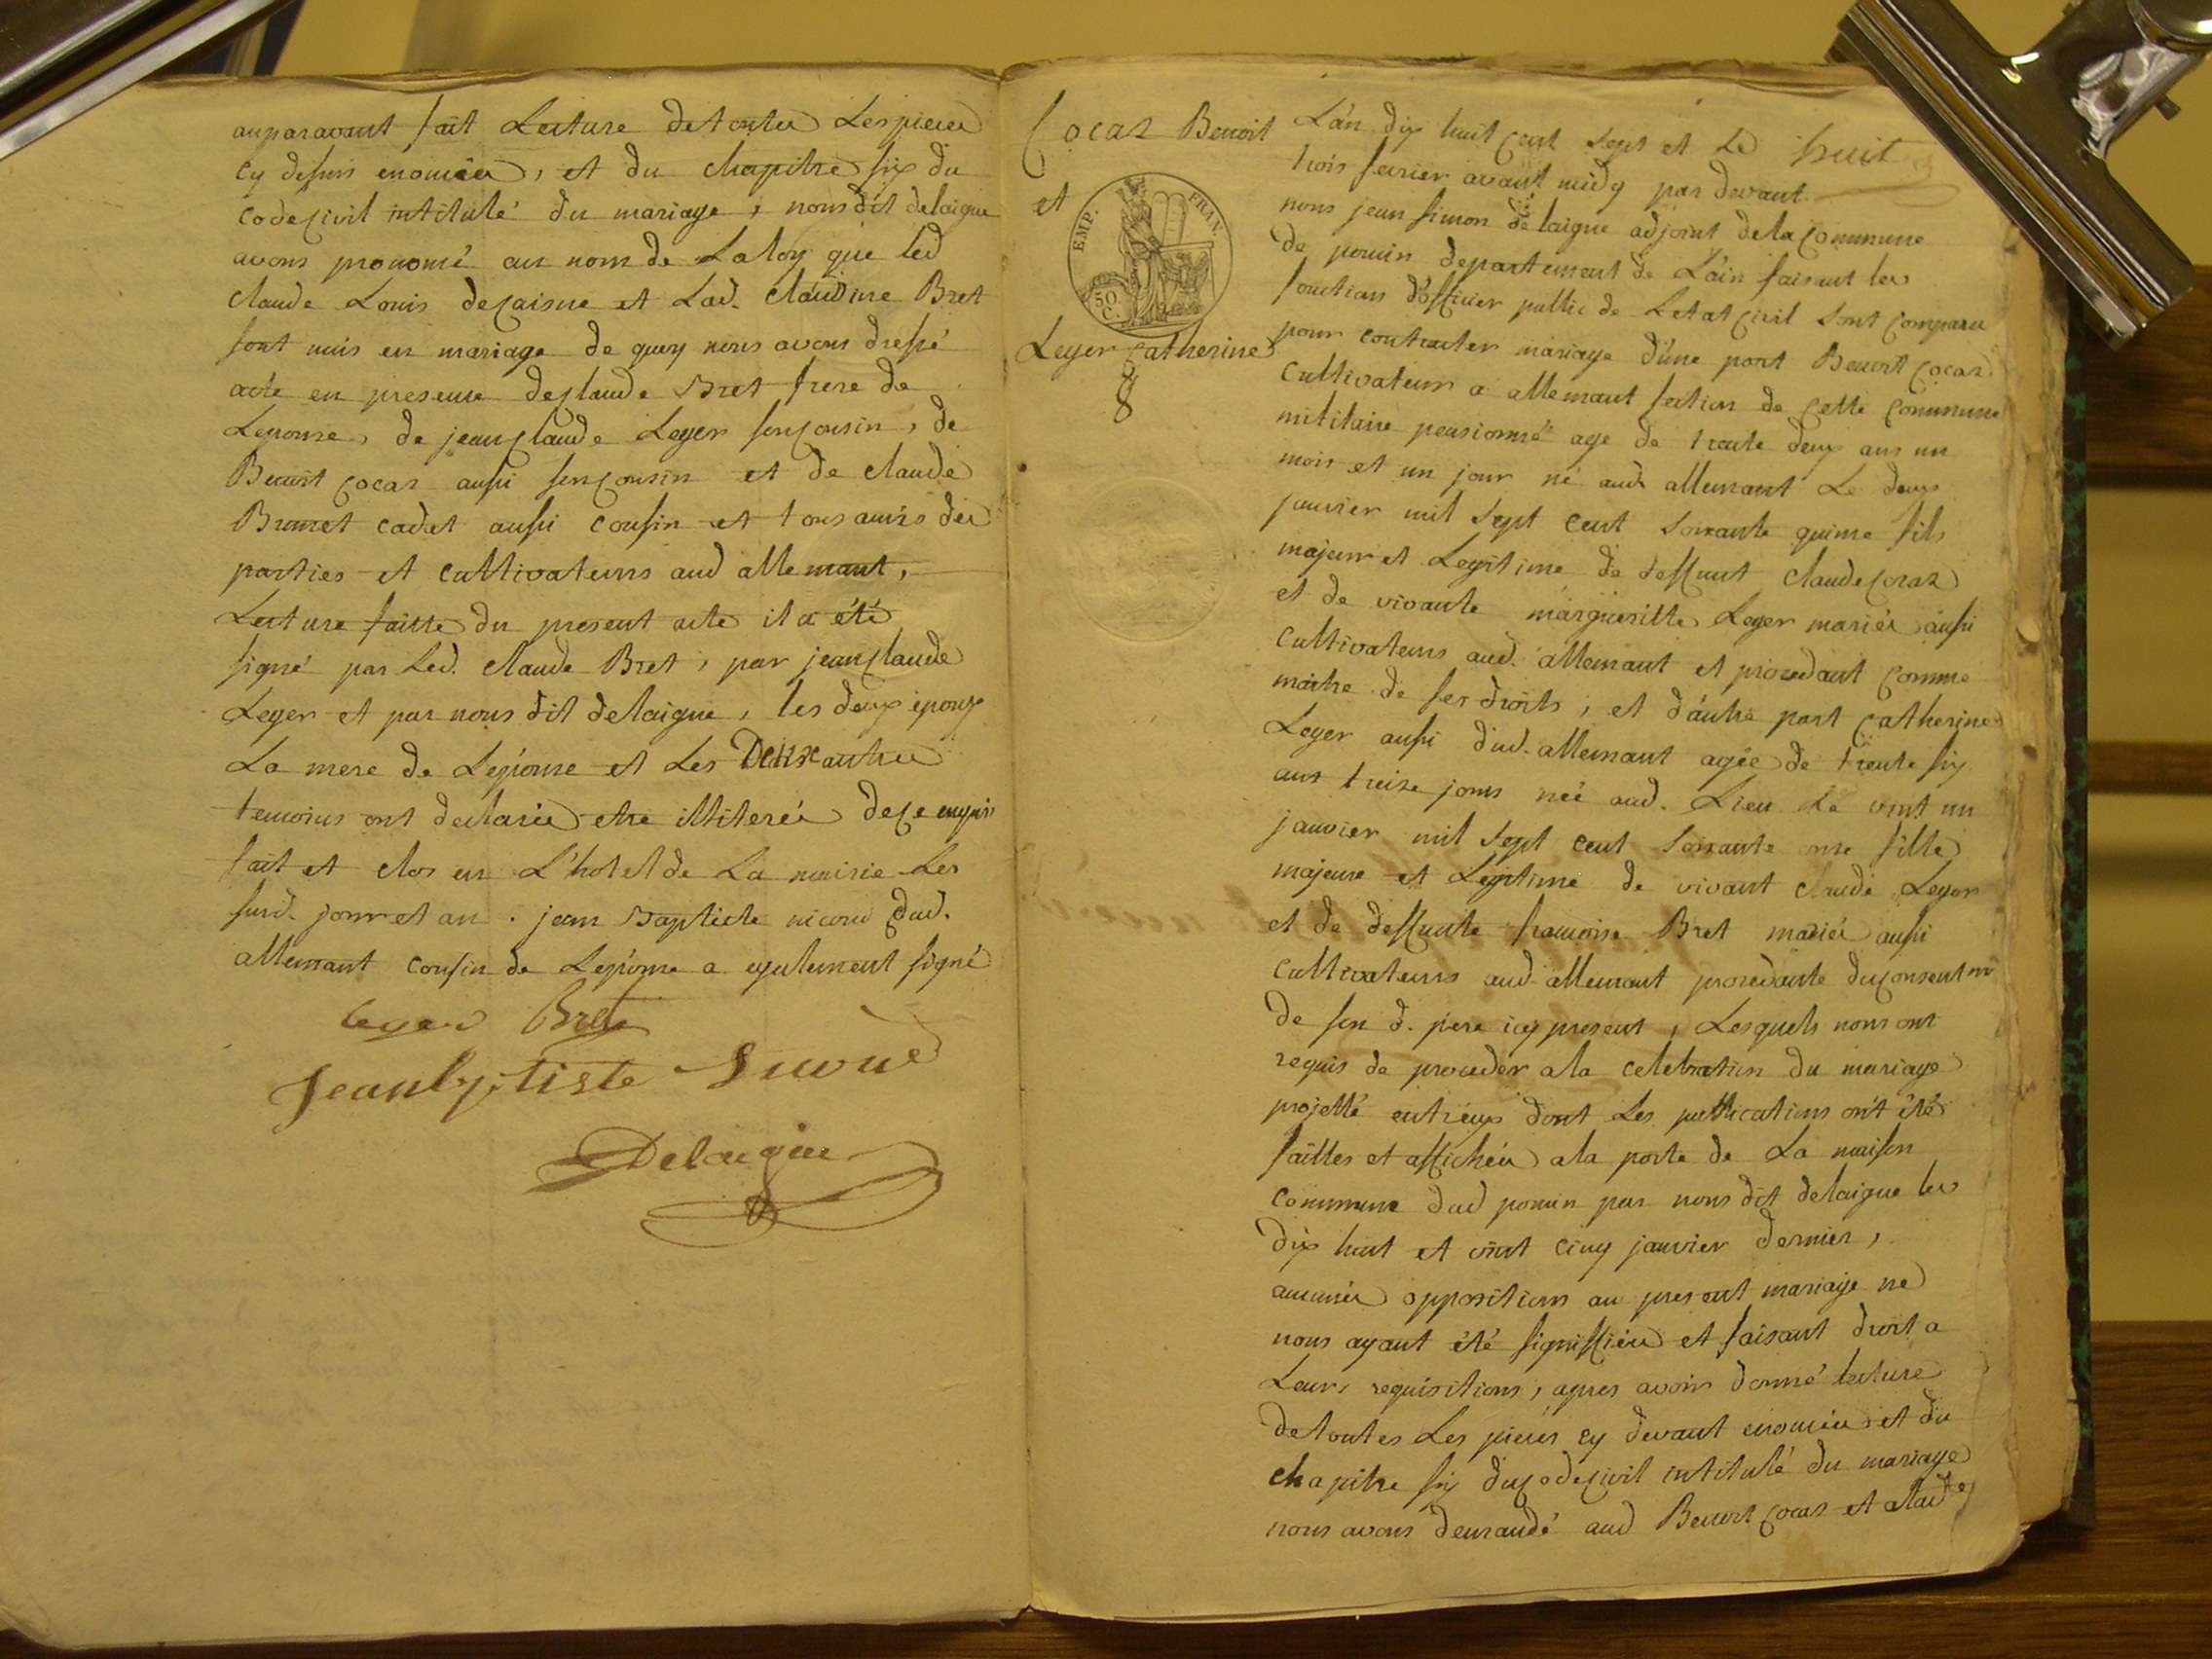 auparavant fait Lecture detoutes Les pieces
cy dessus enoncées, et du chapitre six du
code civil intitulé du mariage, nous dit delaigue
avons prononcé au nom de La loy que led
claude Louis decaisne et Lad. claudine Bret
sont unis en mariage de quoy nous avons dressé
acte en presence declaude Bret frere de
Lepouse, de jeanclaude Leger soncousin, de
Benoit cocaz aussi soncousin et de claude
Brunet cadet aussi cousin et tous amis des
parties et cultivateurs aud allemant,
Lecture faitte du present acte il a été
signé par Led. claude Bret, par jeanclaude
Leger et par nous dit delaigue, les deux époux
La mere de Lepouse et Les Deux autres
temoins ont declarés etre illiterés dece enquis
fait et clos en L'hotel de La mairie Les
susd. jour et an . jean Baptiste nicoud dud.
allemant cousin de Lepouse a egalement signé
leger Bret
Jeanbptiste Nicoud
Delaigue
Cocaz Benoit
et
EMP. FRAN.
50 C.
Leger catherine
8
L'an dix huit cent sept et Le huit
trois fevrier avant midy par devant
nous jean simon delaigue adjoint dela commune
de pouin departement de L'ain faisant les
fonctions d'officier public de Letat civil sont comparu
pour contracter mariage d'une part Benoit cocaz
cultivateur a allemant section de cette commune
militaire pensionné age de trente deux ans un
mois et un jour né aud allemant Le deux
janvier mil sept cent soixante quinze fils
majeur et Legitime de deffunt claude cocaz
et de vivante margueritte Leger mariés aussi
cultivateurs aud. allemant et procedant comme
maitre de ses droits, et d'autre part catherine
Leger aussi dud. allemant agée de trente six
ans treize jours née aud. Lieu Le vint un
janvier mil sept cent soixante onze fille
majeure et Legitime de vivant claude Leger
et de deffunte francoise Bret mariés aussi
cultivateurs aud allemant procedante duconsentmt
de son d. pere icy present, Lesquels nous ont
requis de proceder a la celebration du mariage
projetté entr'eux dont Les publications ont été
faittes et affichées a la porte de La maison
commune dud pouin par nous dit delaigue les
dix huit et vint cinq janvier dernier,
aucunes oppositions au present mariage ne
nous ayant été signiffiées et faisant droit a
Leurs requisitions, apres avoir donné lecture
detoutes Les pieces cy devant enoncées et du
chapitre six ducodecivil intitulé du mariage
nous avons demandé aud Benoit cocaz et alade